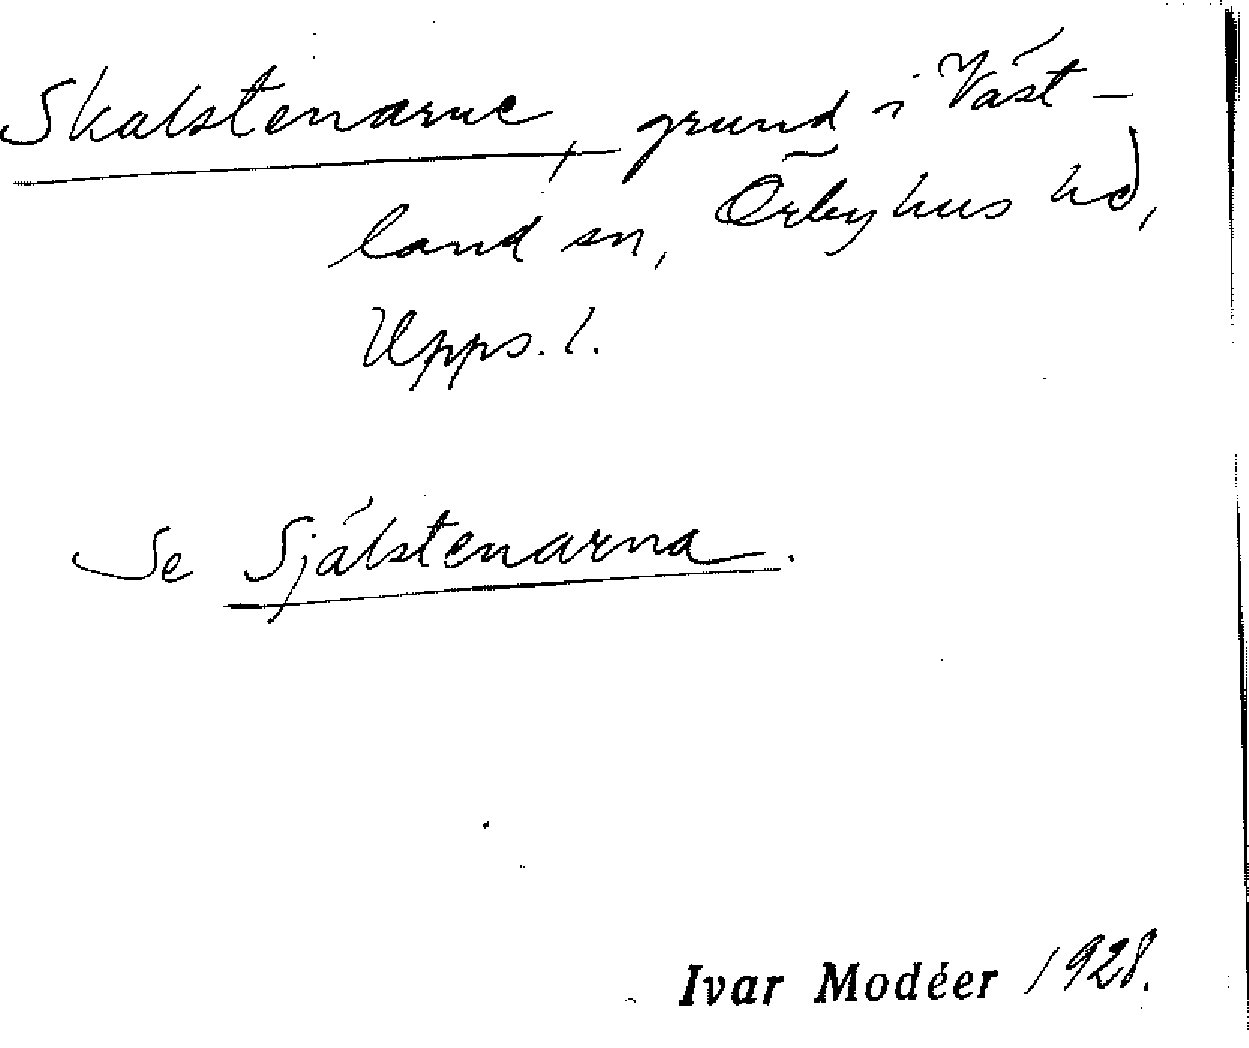 Skalstenarne, grund i Väst-
land sn, Örbyhus hd,
Upps. l.
Se Själstenarna.
Ivar Modéer 1928.